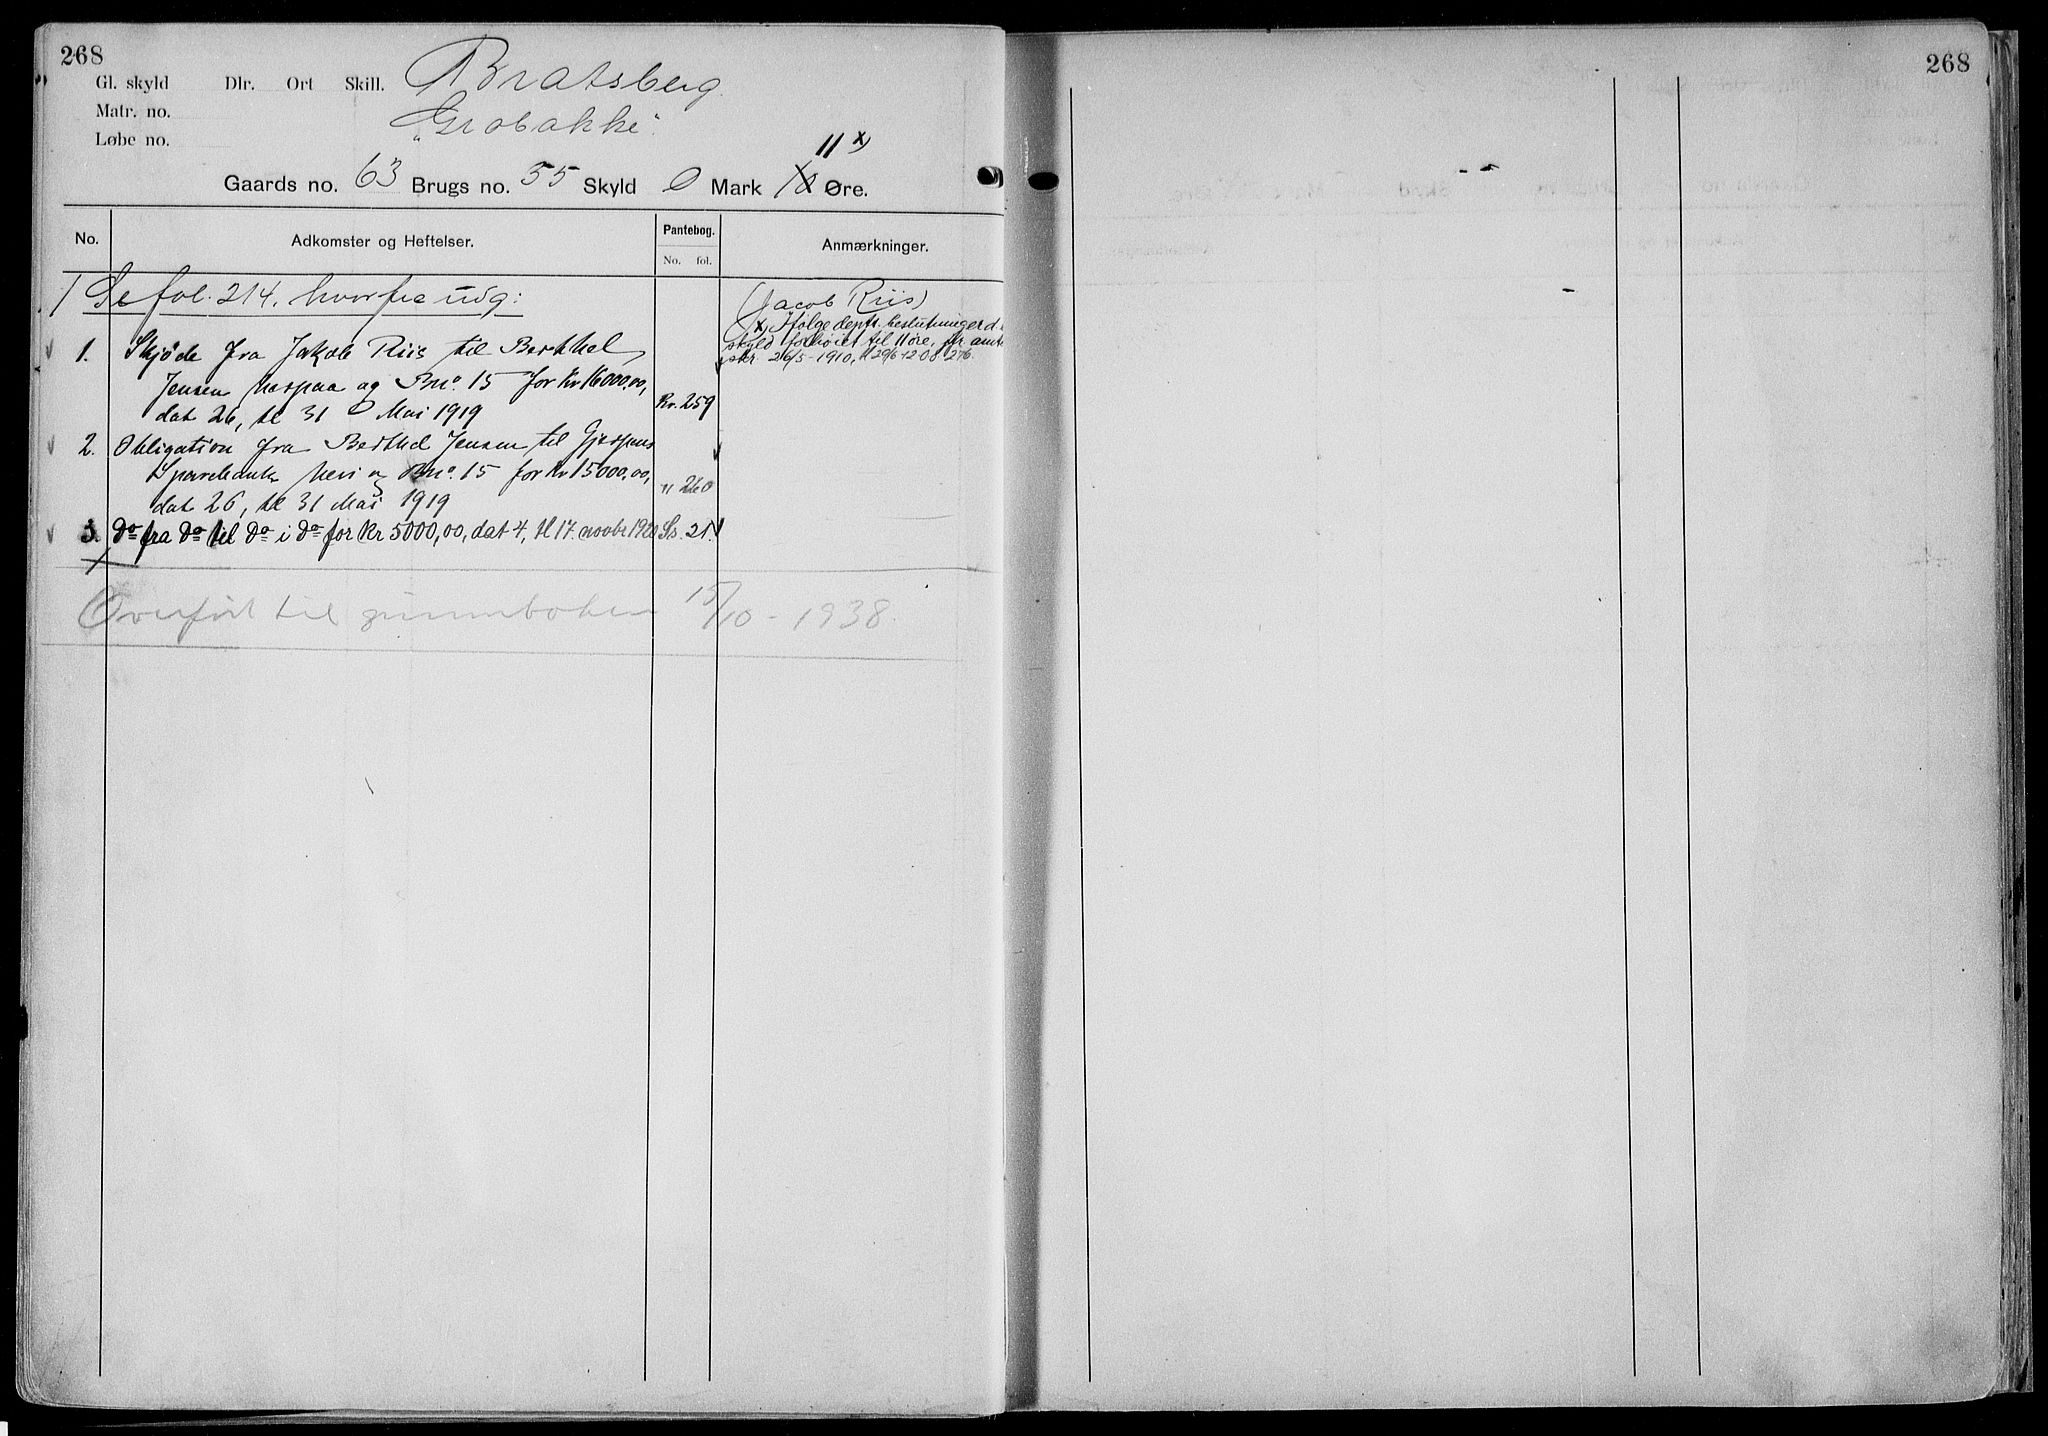 268
Gl. skyld Dlr. Ort Skill. Bratsberg
Matr. no. "Grobakke".
Løbe no.
11 x)
Gaards no. 63 Brugs no. 55 Skyld 0 Mark 10 Øre.
No. Adkomster og Heftelser. Pantebog. No. fol. Anmærkninger.
Se fol. 214, hvorfra udg:
(Jacob Riis)
x) Ifølge depts. beslutning er d.
skyld forhøiet til 11 øre, jfr amts
skr 26/5-1910,
1. Skjøde fra Jakob Riis til Berthel
Jensen herpaa og Bno. 15 for Kr 16000,00,
dat 26, tl 31 Mai 1919 Kv. 259
2. Obligation fra Berthel Jensen til Gjerpens
Sparebank heri og Bno. 15 for Kr 15000,00,
dat 26, tl 31 Mai 1919 " 260
3. Do fra do til do i do for Kr 5000,00, dat 4, tl 17. novbr 1920 Ss. 21.
Overført til grunnboken 15/10 - 1938.
268